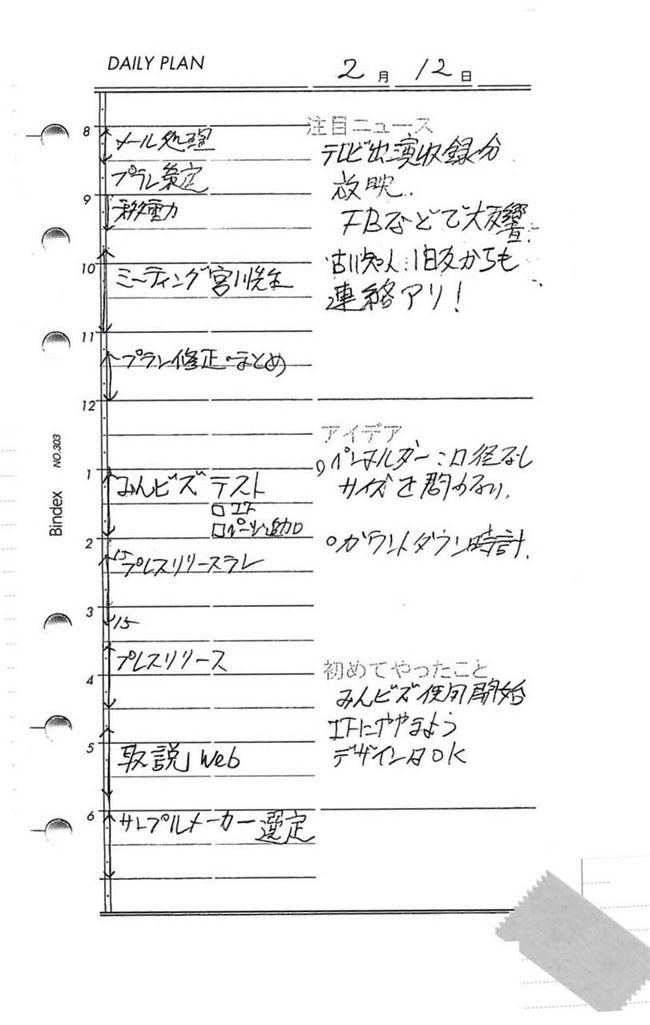 DAILY PLAN
2月12日
8
メール処理
プラン策定
9
移動
10
ミーティング宮川先生
11
プラン修正・まとめ
12
1
みんビズ テスト
□ エド
□ パーツ追加
2
15
プレスリリース
3
15
プレスリリース
4
5
取説 Web
6
サンプルメーカー選定
注目ニュース
テレビ出演収録分
放映.
FBなどで大反響.
古い知人・旧友からも
連絡アリ!
アイデア
○ペンホルダー:口径なし
サイズを問わない.
○カウントダウン時計.
初めてやったこと
みんビズ使用開始
にややまよう
デザインはOK
Bindex NO.303